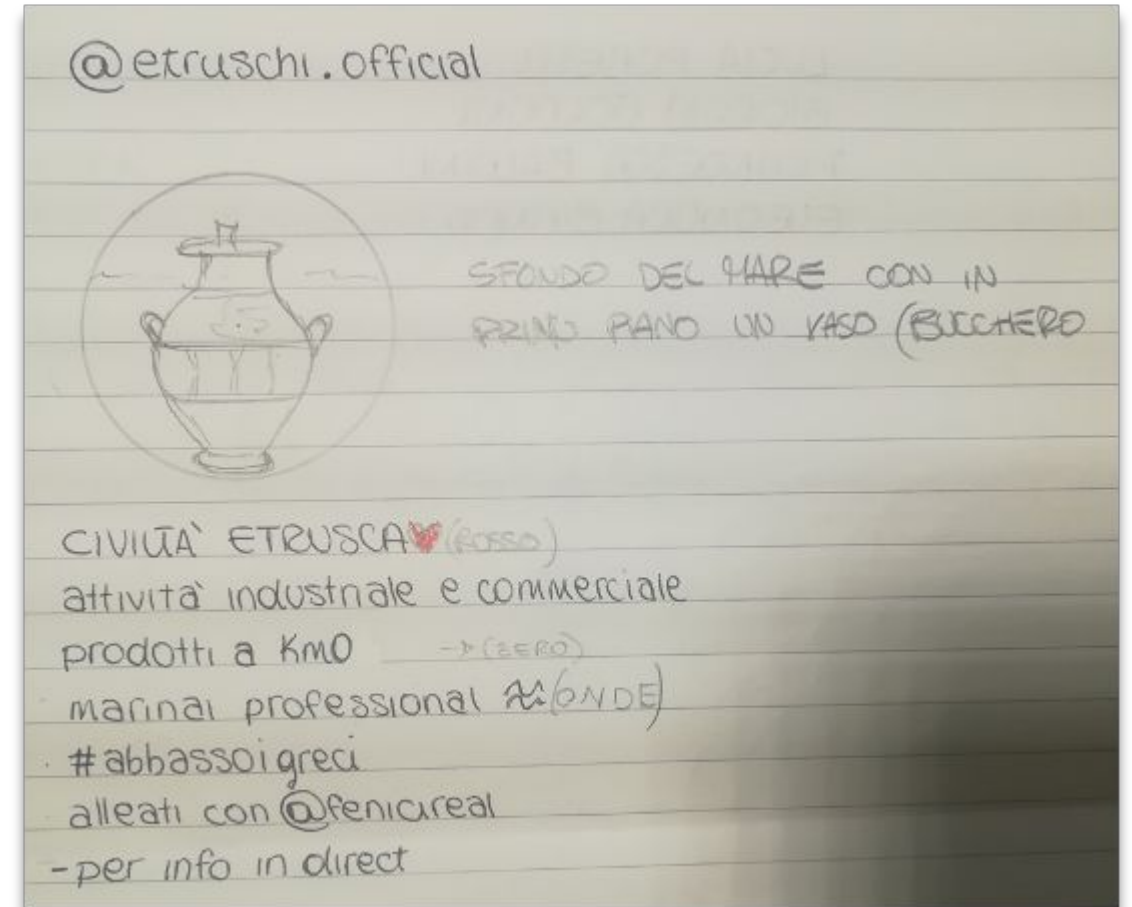 @etruschi.official
SFONDO DEL MARE CON IN
PRIMO PIANO UN VASO (BUCCHERO
CIVILTÀ ETRUSCA❤(ROSSO)
attività industriale e commerciale
prodotti a Km0 → (ZERO)
marinai professional (ONDE)
#abbassoigreci
alleati con @fenicireal
-per info in direct